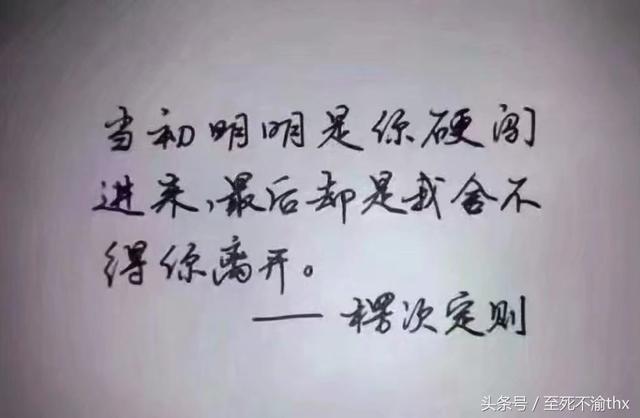 当初明明是你硬闯
进来,最后却是我舍不
得你离开。
——楞次定则
头条号 / 至死不渝thx